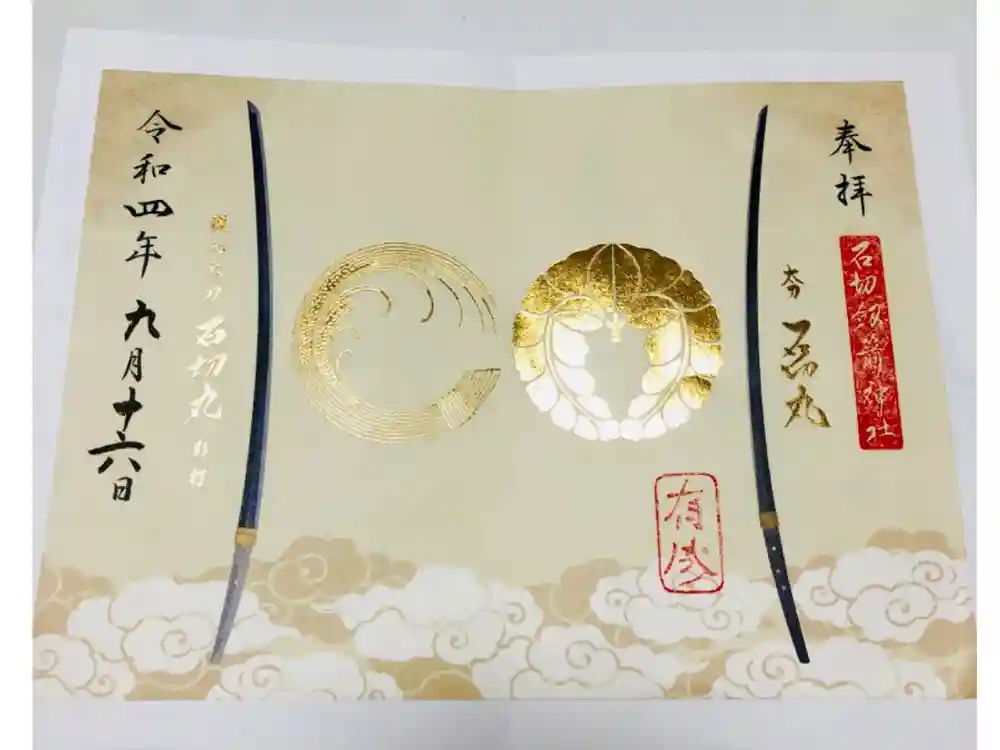 奉拝
石切劔箭神社
石切丸
有成
石切丸
令和四年九月十六日